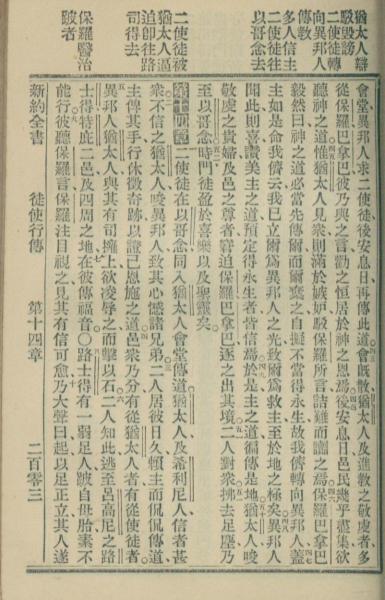 猶太人辯
駁毀謗
二使徒轉
向異邦人
傳教
多人信主
二使徒往
以哥念去
二使徒被
猶太人逼
迫卽往路
司得去
保羅醫治
跛者
會堂異邦人求二使徒後安息日再傳此道會旣散猶太人及進教之敬虔者多
從保羅巴拿巴彼乃與之言勸之恒居於神之恩焉後安息日邑民幾乎盡集欲
聽神之道惟猶太人見衆則滿於嫉妒駁保羅所言詰難而謗之焉保羅巴拿巴
毅然曰神之道必當先傳爾而爾棄之自擬不當得永生故我儕轉向異邦人蓋
主如是命我儕云我已立爾爲異邦人之光致爾爲救主至於地之極矣異邦人
聞此則喜讚美主之道預定得永生者皆信焉於是主之道徧傳是地猶太人唆
敬虔之貴婦及邑之尊者窘迫保羅巴拿巴逐之出其境二人對衆拂去足塵乃
至以哥念時門徒盈於喜樂以及聖靈矣
第十四章 二使徒在以哥念同入猶太人會堂傳道猶太人及希利尼人信者甚
衆不信之猶太人唆異邦人致其心憾諸兄弟二人居彼日久賴主而侃侃傳道
主傳其手行休徵奇跡以證己恩施之道邑衆乃分有從猶太人者有從使徒者
異邦人猶太人與其有司擁上欲凌辱之而擊以石二人知此逃至呂高尼之路
士得特庇二邑及四周之地在彼傳福音○路士得有一弱足人跛自母胎素不
能行彼聽保羅言保羅注目視之見其有信可愈乃大聲曰起以足正立其人遂
新約全書 徒使行傳 第十四章 二百零三